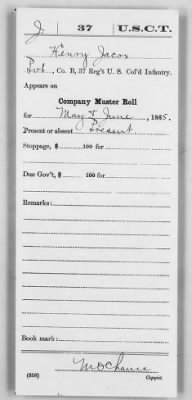 J. 37 U.S.C.T.
Henry Jacox
Pvt., Co. B, 37 Reg't U. S. Col'd Infantry.
Appears on
Company Muster Roll
for May & June, 1865.
Present or absent Present
Stoppage, $ 100 for
Due Gov't, $ 100 for
Remarks:
Book mark:
(358)
Copyist.